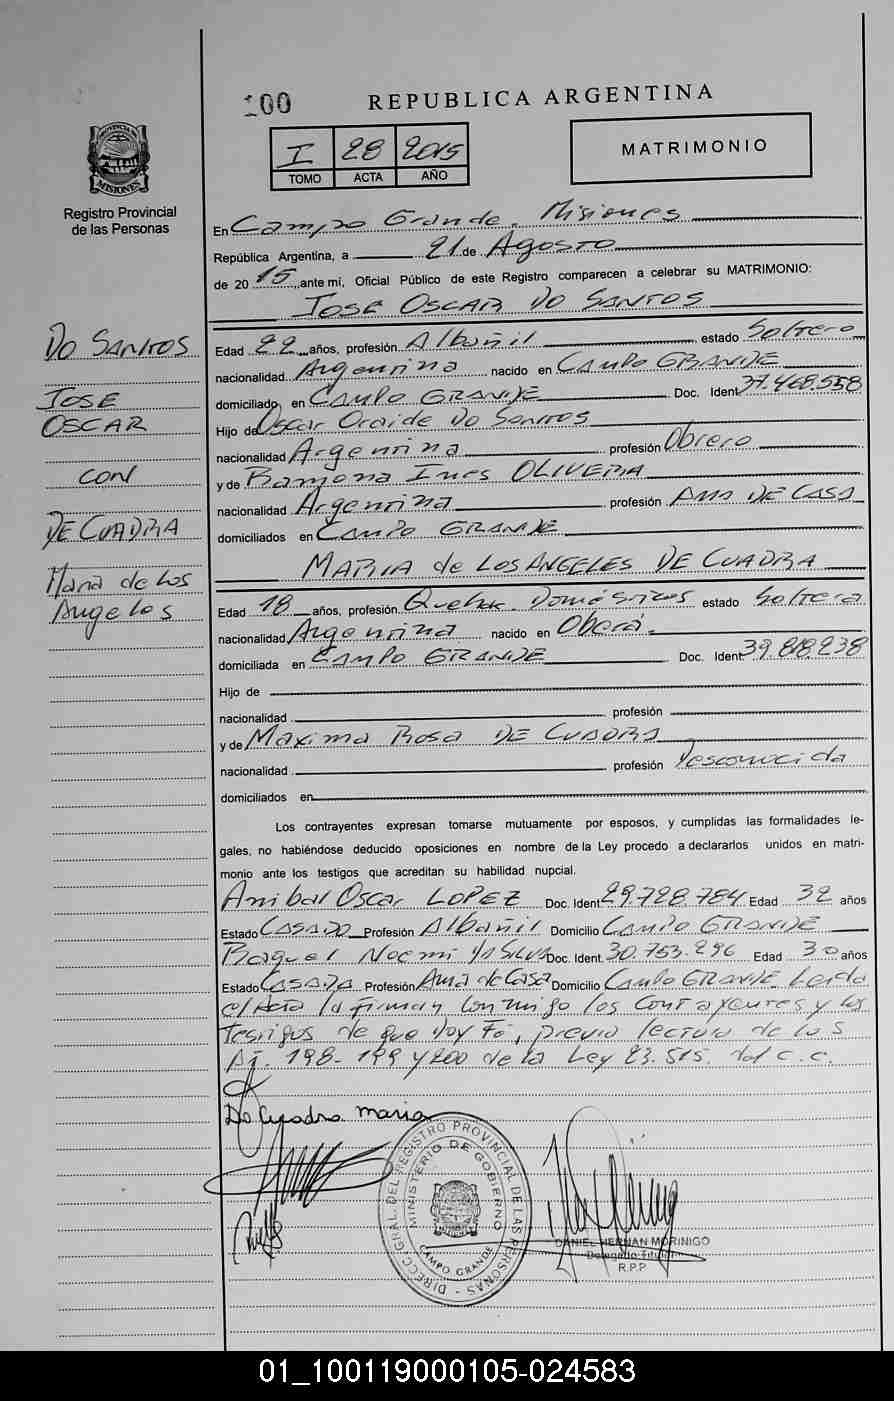 100
REPUBLICA ARGENTINA
I 28 2015
TOMO ACTA AÑO
MATRIMONIO
PROVINCIA DE
MISIONES
Registro Provincial
de las Personas
En Campo Grande, Misiones
República Argentina, a 21 de Agosto
de 20 15, ante mi, Oficial Público de este Registro comparecen a celebrar su MATRIMONIO:
JOSE OSCAR DO SANTOS
Edad 22 años, profesión Albañil estado Soltero
nacionalidad Argentina nacido en CAMPO GRANDE
domiciliado en CAMPO GRANDE Doc. Ident 37.468.558
Hijo de Oscar Oraide Do Santos
nacionalidad Argentina profesión Obrero
y de Ramona Ines OLIVEIRA
nacionalidad Argentina profesión AMA DE CASA
domiciliados en CAMPO GRANDE
MARIA de LOS ANGELES DE CUADRA
Edad 18 años, profesión Quehac. Domésticos estado Soltera
nacionalidad Argentina nacido en Oberá
domiciliada en CAMPO GRANDE Doc. Ident 39.818.238
Hijo de
nacionalidad profesión
y de Maxima Rosa DE CUADRA
nacionalidad profesión Desconocida
domiciliados en
Los contrayentes expresan tomarse mutuamente por esposos, y cumplidas las formalidades le-
gales, no habiéndose deducido oposiciones en nombre de la Ley procedo a declararlos unidos en matri-
monio ante los testigos que acreditan su habilidad nupcial.
Anibal Oscar LOPEZ Doc. Ident 29.728.784 Edad 32 años
Estado CASADO Profesión Albañil Domicilio CAMPO GRANDE
Raquel Noemi Da Silva Doc. Ident. 30.753.296 Edad 30 años
Estado CASADA Profesión Ama de Casa Domicilio CAMPO GRANDE Leida
el Acta la firman conmigo los contrayentes y los
testigos de que Doy Fé, previo lectura de los
Art. 198-199 y 200 de la Ley 23.515. del c.c.
DO SANTOS
JOSE
OSCAR
CON
DE CUADRA
Maria de los
Angeles
De Cuadra maria
DIRECC. GRAL. DEL REGISTRO PROVINCIAL DE LAS PERSONAS
MINISTERIO DE GOBIERNO
CAMPO GRANDE
DANIEL HERNAN MORINIGO
Delegado Titular
R.P.P
01_100119000105-024583